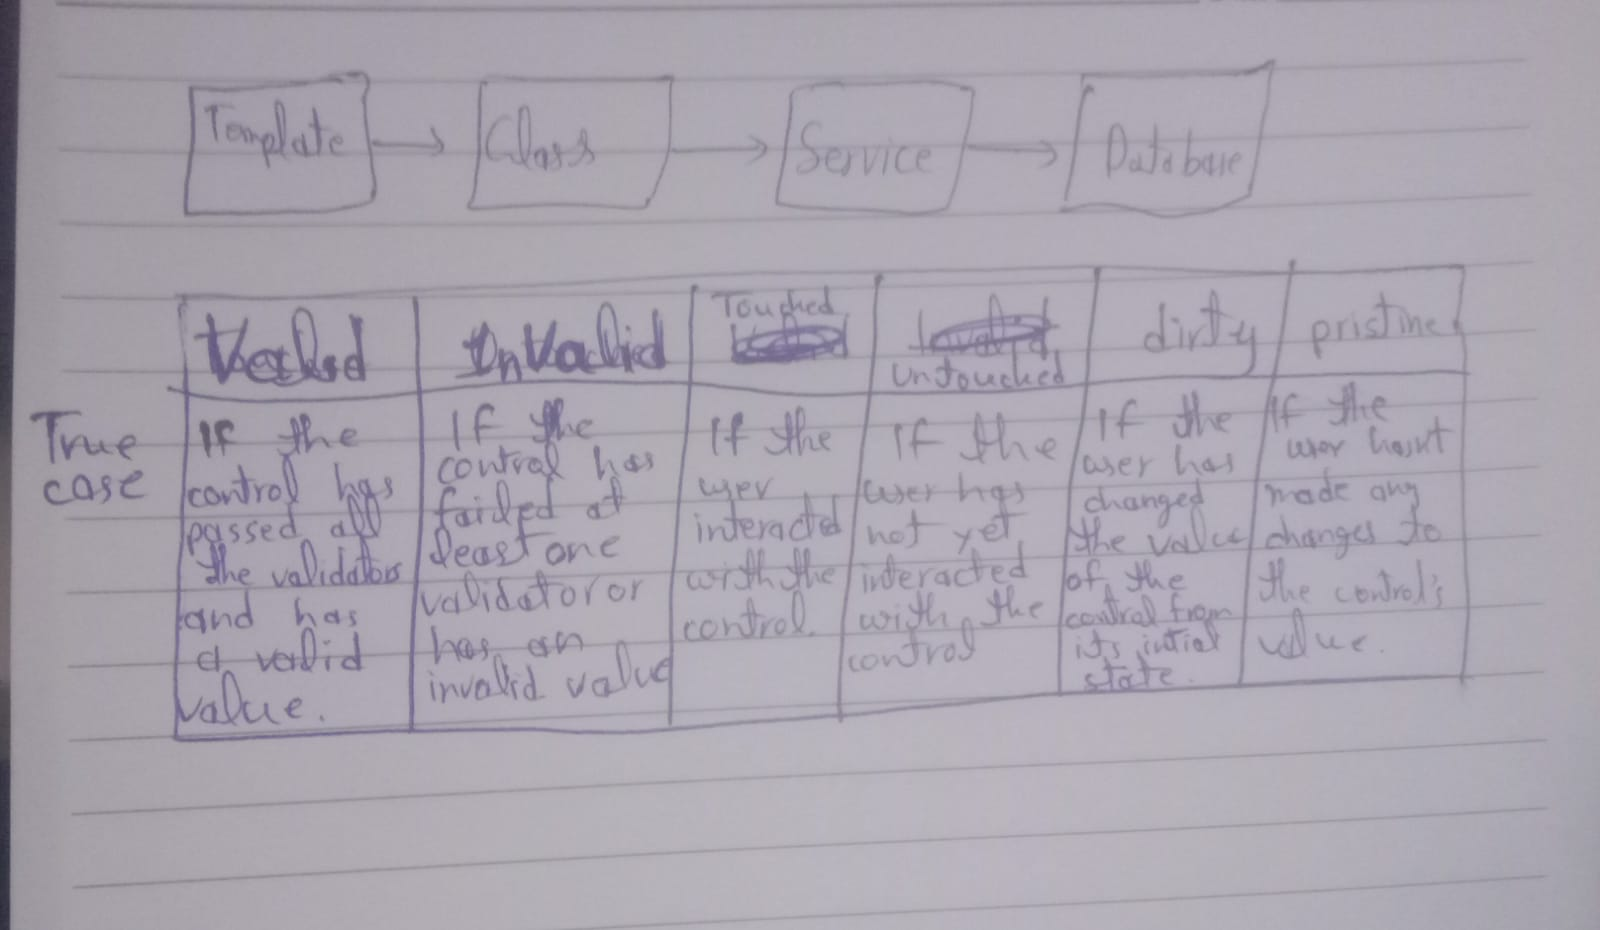 Template → Class → Service → Database
Valid
InValid
Touched
Untouched
dirty
pristine
True
case
If the
control has
passed all
the validators
and has
a valid
value.
If the
control has
failed at
least one
validator or
has an
invalid value
If the
user
interacted
with the
control.
If the
user has
not yet
interacted
with the
control
If the
user has
changed
the value
of the
control from
its initial
state.
If the
user hasnt
made any
changes to
the control's
value.